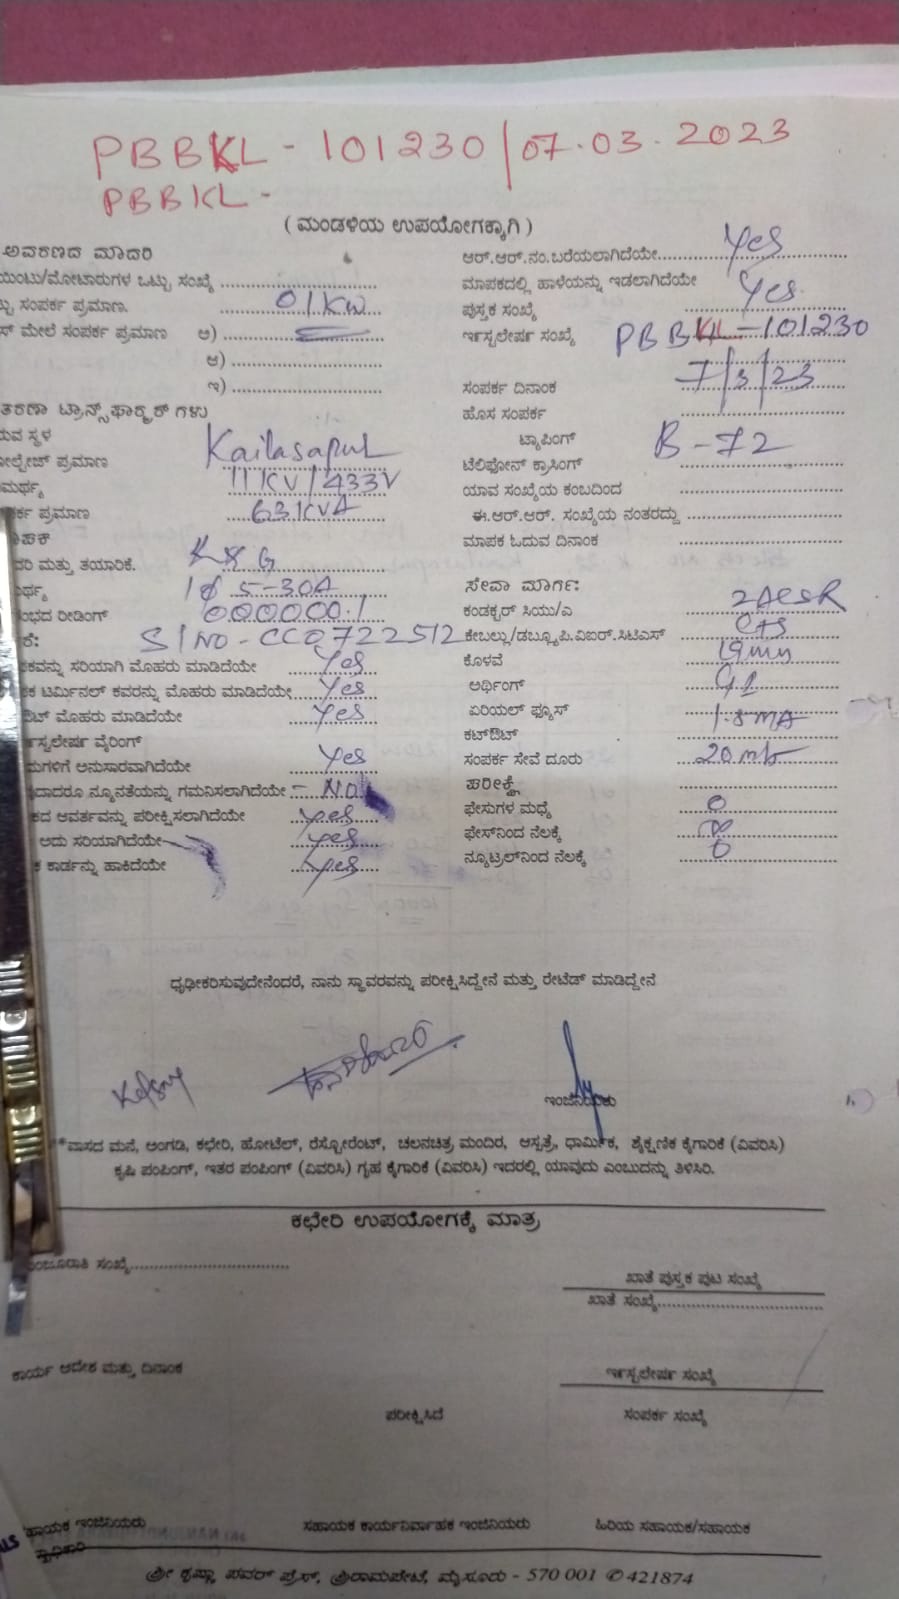 PBBKL - 101230 / 07.03.2023
PBBKL -
( ಮಂಡಳಿಯ ಉಪಯೋಗಕ್ಕಾಗಿ )
ಅವರಣದ ಮಾದರಿ
ಯಿಂಟು/ಮೋಟಾರುಗಳ ಒಟ್ಟು ಸಂಖ್ಯೆ
ಸಂಪರ್ಕ ಪ್ರಮಾಣ. 01KW
ಮೇಲೆ ಸಂಪರ್ಕ ಪ್ರಮಾಣ ಅ)
ಆ)
ಇ)
ತರಣಾ ಟ್ರಾನ್ಸ್‌ಫಾರ್ಮರ್ ಗಳು
ಸ್ಥಳ Kailasapur
ಪ್ರಮಾಣ 11KV/433V
63KVA
ಪ್ರಮಾಣ
ಮತ್ತು ತಯಾರಿಕೆ. L&G
1ϕ 5-30A
ರೀಡಿಂಗ್ 000000.1
S/NO - CC0722512
ಸರಿಯಾಗಿ ಮೊಹರು ಮಾಡಿದೆಯೇ Yes
ಟರ್ಮಿನಲ್ ಕವರನ್ನು ಮೊಹರು ಮಾಡಿದೆಯೇ Yes
ಮೊಹರು ಮಾಡಿದೆಯೇ Yes
ವೈರಿಂಗ್
ಅನುಸಾರವಾಗಿದೆಯೇ Yes
ನ್ಯೂನತೆಯನ್ನು ಗಮನಿಸಲಾಗಿದೆಯೇ - No
ಆವರ್ತವನ್ನು ಪರೀಕ್ಷಿಸಲಾಗಿದೆಯೇ Yes
ಅದು ಸರಿಯಾಗಿದೆಯೇ Yes
ಕಾರ್ಡನ್ನು ಹಾಕಿದೆಯೇ Yes
ಆರ್.ಆರ್.ನಂ.ಬರೆಯಲಾಗಿದೆಯೇ Yes
ಮಾಪಕದಲ್ಲಿ ಹಾಳೆಯನ್ನು ಇಡಲಾಗಿದೆಯೇ Yes
ಪುಸ್ತಕ ಸಂಖ್ಯೆ
ಇನ್ಸ್ಟಲೇಷನ್ ಸಂಖ್ಯೆ PBBKL-101230
ಸಂಪರ್ಕ ದಿನಾಂಕ 7/3/23
ಹೊಸ ಸಂಪರ್ಕ
ಟ್ಯಾಪಿಂಗ್ B-72
ಟೆಲಿಫೋನ್ ಕ್ರಾಸಿಂಗ್
ಯಾವ ಸಂಖ್ಯೆಯ ಕಂಬದಿಂದ
ಈ.ಆರ್.ಆರ್. ಸಂಖ್ಯೆಯ ನಂತರದ್ದು
ಮಾಪಕ ಓದುವ ದಿನಾಂಕ
ಸೇವಾ ಮಾರ್ಗ:
ಕಂಡಕ್ಟರ್ ಸಿಯು/ಎ 2ACSR
ಕೇಬಲ್ಲು/ಡಬ್ಲ್ಯೂ.ಪಿ.ವಿಐರ್.ಸಿಟಿಎಸ್ CTS
ಕೊಳವೆ 19mm
ಅರ್ಥಿಂಗ್ GI
ಏರಿಯಲ್ ಫ್ಯೂಸ್
ಕಟ್‌ಔಟ್
ಸಂಪರ್ಕ ಸೇವೆ ದೂರು 20 mts
ಪರೀಕ್ಷೆ
ಫೇಸುಗಳ ಮಧ್ಯೆ 0
ಫೇಸ್‌ನಿಂದ ನೆಲಕ್ಕೆ ∞
ನ್ಯೂಟ್ರಲ್‌ನಿಂದ ನೆಲಕ್ಕೆ 0
ಧೃಢೀಕರಿಸುವುದೇನೆಂದರೆ, ನಾನು ಸ್ಥಾವರವನ್ನು ಪರೀಕ್ಷಿಸಿದ್ದೇನೆ ಮತ್ತು ರೇಟೆಡ್ ಮಾಡಿದ್ದೇನೆ
ಇಂಜಿನಿಯರು
**ವಾಸದ ಮನೆ, ಅಂಗಡಿ, ಕಛೇರಿ, ಹೋಟೆಲ್, ರೆಸ್ಟೋರೆಂಟ್, ಚಲನಚಿತ್ರ ಮಂದಿರ, ಆಸ್ಪತ್ರೆ, ಧಾರ್ಮಿಕ, ಶೈಕ್ಷಣಿಕ ಕೈಗಾರಿಕೆ (ವಿವರಿಸಿ)
ಕೃಷಿ ಪಂಪಿಂಗ್, ಇತರ ಪಂಪಿಂಗ್ (ವಿವರಿಸಿ) ಗೃಹ ಕೈಗಾರಿಕೆ (ವಿವರಿಸಿ) ಇದರಲ್ಲಿ ಯಾವುದು ಎಂಬುದನ್ನು ತಿಳಿಸಿರಿ.
ಕಛೇರಿ ಉಪಯೋಗಕ್ಕೆ ಮಾತ್ರ
ಮಂಜೂರಾತಿ ಸಂಖ್ಯೆ
ಖಾತೆ ಪುಸ್ತಕ ಪುಟ ಸಂಖ್ಯೆ
ಖಾತೆ ಸಂಖ್ಯೆ
ಕಾರ್ಯ ಆದೇಶ ಮತ್ತು ದಿನಾಂಕ
ಇನ್ಸ್ಟಲೇಷನ್ ಸಂಖ್ಯೆ
ಪರೀಕ್ಷಿಸಿದೆ ಸಂಪರ್ಕ ಸಂಖ್ಯೆ
ಸಹಾಯಕ ಇಂಜಿನಿಯರು ಸಹಾಯಕ ಕಾರ್ಯನಿರ್ವಾಹಕ ಇಂಜಿನಿಯರು ಹಿರಿಯ ಸಹಾಯಕ/ಸಹಾಯಕ
ಶ್ರೀ ಕೃಷ್ಣಾ ಪವರ್ ಪ್ರೆಸ್, ಶ್ರೀರಾಮಪೇಟೆ, ಮೈಸೂರು - 570 001 ✆ 421874